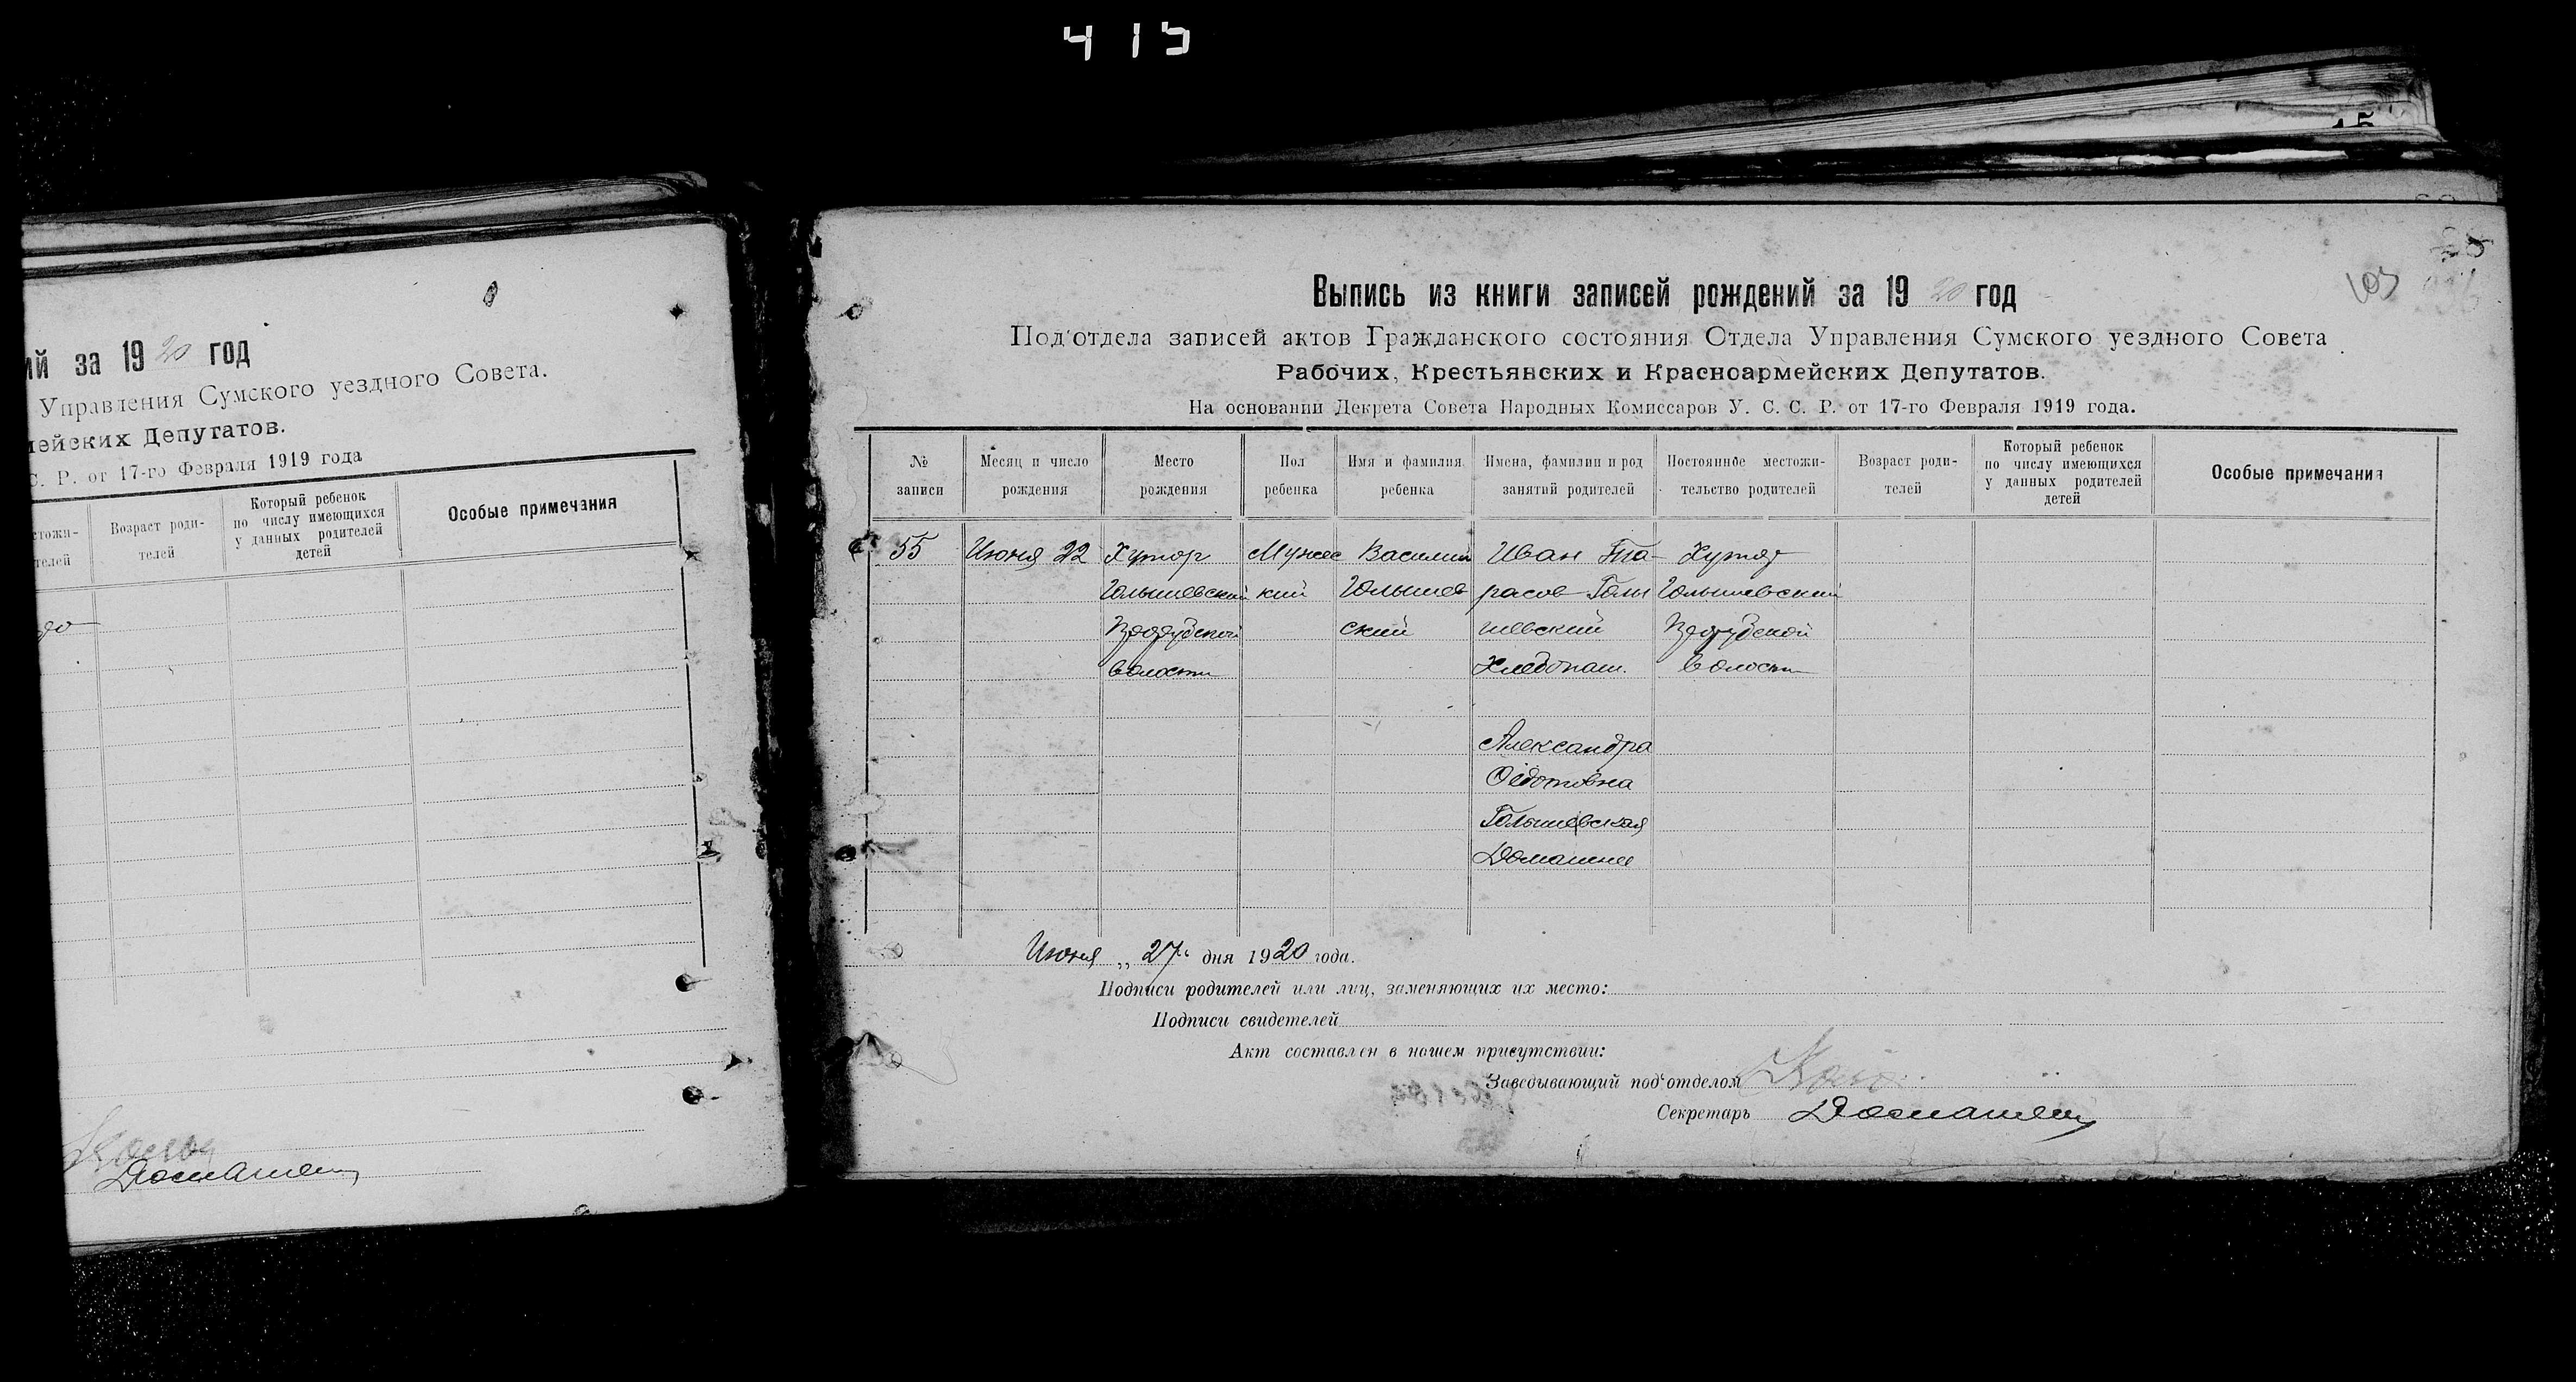 415
15
ий за 1920 год
Управления Сумского уездного Совета.
мейских Депутатов.
С. Р. от 17-го Февраля 1919 года
стожи-
телей
Возраст роди-
телей
Который ребенок
по числу имеющихся
у данных родителей
детей
Особые примечания
Домашен
103
Выпись из книги записей рождений за 1920 год
Под'отдела записей актов Гражданского состояния Отдела Управления Сумского уездного Совета
Рабочих, Крестьянских и Красноармейских Депутатов.
На основании Декрета Совета Народных Комиссаров У. С. С. Р. от 17-го Февраля 1919 года.
№
записи
Месяц и число
рождения
Место
рождения
Пол
ребенка
Имя и фамилия
ребенка
Имена, фамилии и род
занятий родителей
Постоянное местожи-
тельство родителей
Возраст роди-
телей
Который ребенок
по числу имеющихся
у данных родителей
детей
Особые примечания
55
Июня 22
Хутор
Голышевский
волости
Мужес
кий
Василий
Голышев
ский
Иван Та-
расов Голы
шевский
Хлебопаш.
Александра
Федотовна
Голышевская
Домашнее
Хутор
Голышевский
волости
Июня „27" дня 1920 года.
Подписи родителей или лиц, заменяющих их место:
Подписи свидетелей
Акт составлен в нашем присутствии:
Заведывающий под'отделом
Секретарь Домашен